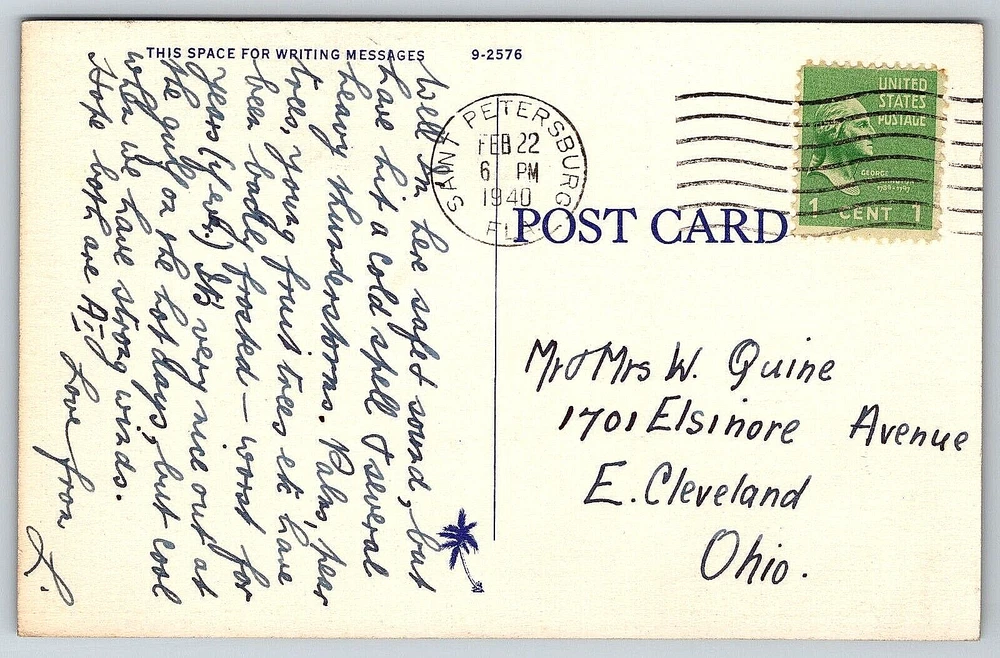 THIS SPACE FOR WRITING MESSAGES 9-2576
Well I'm here safe & sound, but
have hit a cold spell & several
heavy thunderstorms. Palms, pear
trees, young fruit trees etc have
been badly frosted — worst for
years It's very nice out at
the gulf on the hot days, but cool
when we have strong winds.
Hope both are A-1
Love from
L.
SAINT PETERSBURG
FEB 22
6 PM
1940
FLA
POST CARD
UNITED
STATES
POSTAGE
GEORGE
WASHINGTON
1789-1797
1 CENT 1
Mr & Mrs W. Quine
1701 Elsinore Avenue
E. Cleveland
Ohio.